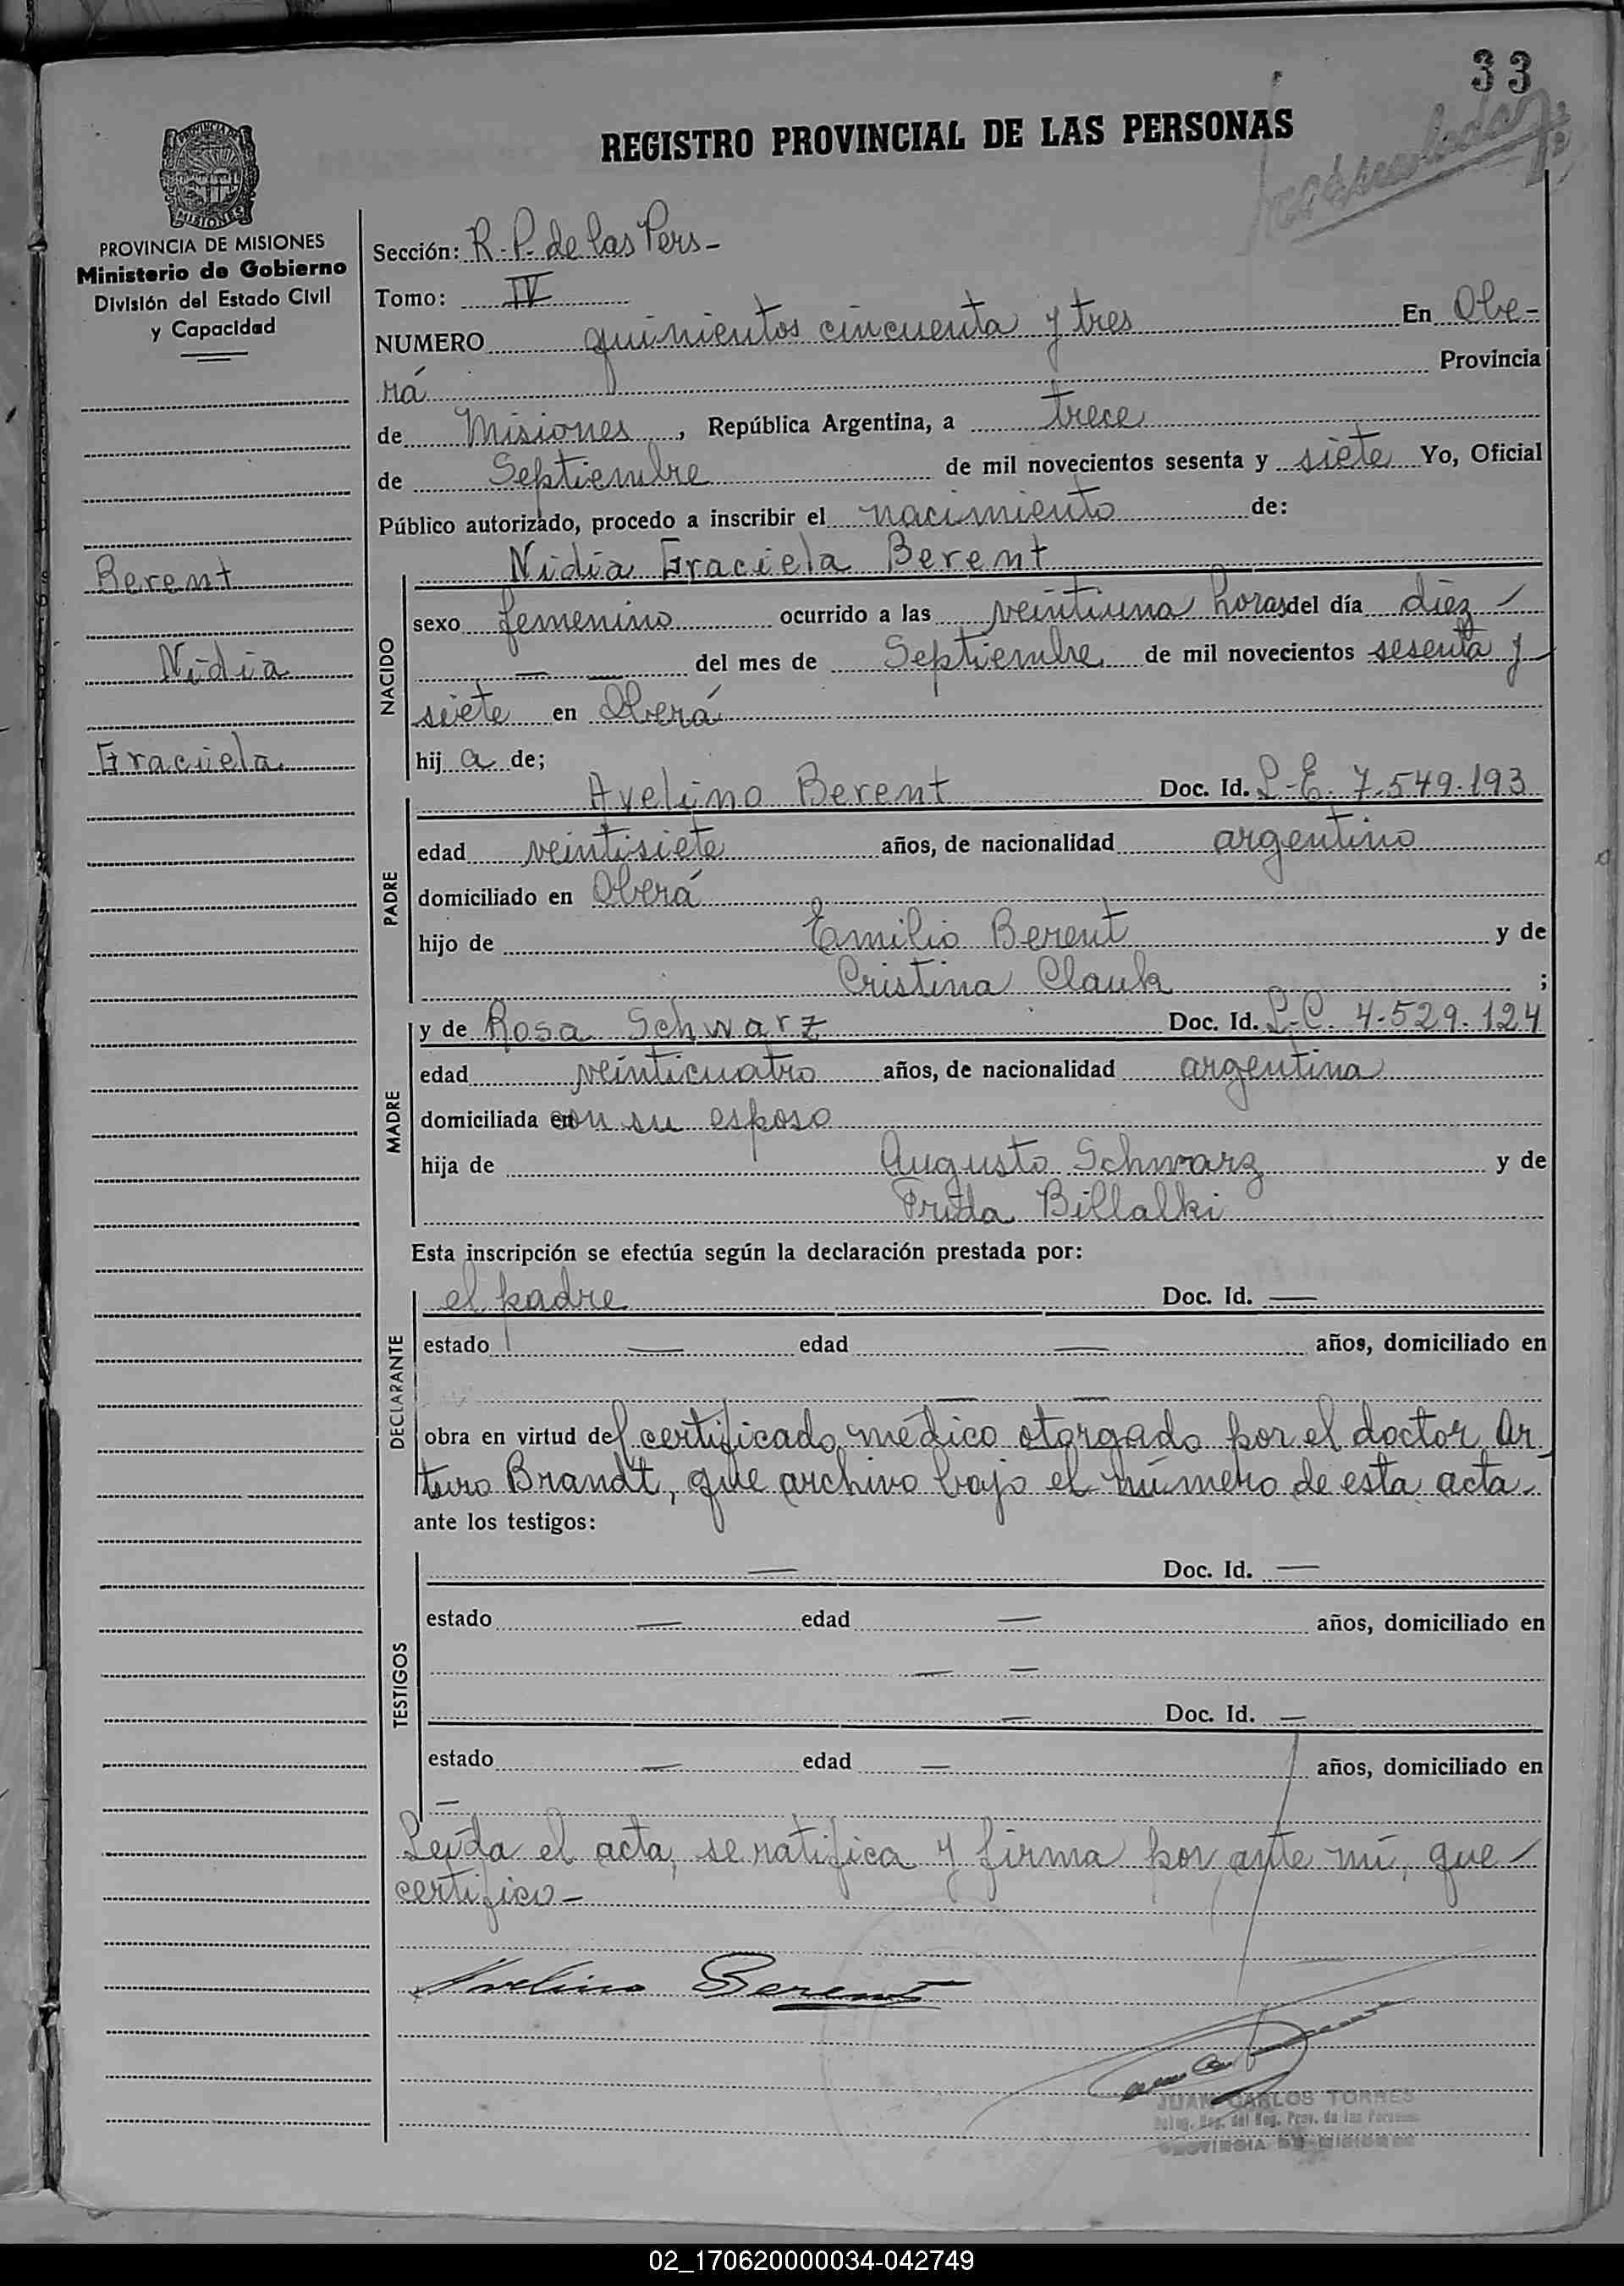 33
REGISTRO PROVINCIAL DE LAS PERSONAS
PROVINCIA DE MISIONES
PROVINCIA DE MISIONES
Ministerio de Gobierno
División del Estado Civil
y Capacidad
Berent
Nidia
Graciela
Sección: R.P. de las Pers-
Tomo: IV
NUMERO quinientos cincuenta y tres En Obe-
rá Provincia
de Misiones, República Argentina, a trece
de Septiembre de mil novecientos sesenta y siete Yo, Oficial
Público autorizado, procedo a inscribir el nacimiento de:
NACIDO
Nidia Graciela Berent
sexo femenino ocurrido a las veintiuna horas del día diez -
— — del mes de Septiembre de mil novecientos sesenta y
siete en Oberá
hij a de;
PADRE
Avelino Berent Doc. Id. L.E. 7.549.193
edad veintisiete años, de nacionalidad argentino
domiciliado en Oberá
hijo de Emilio Berent y de
Cristina Clauk ;
MADRE
y de Rosa Schwarz Doc. Id. L.C. 4.529.124
edad veinticuatro años, de nacionalidad argentina
domiciliada en con su esposo
hija de Augusto Schwarz y de
Frida Billalki
Esta inscripción se efectúa según la declaración prestada por:
DECLARANTE
el padre Doc. Id. —
estado — edad — años, domiciliado en
— —
obra en virtud del certificado médico otorgado por el doctor Ar
turo Brandt, que archivo bajo el número de esta acta.
ante los testigos:
TESTIGOS
— Doc. Id. —
estado — edad — años, domiciliado en
— —
— Doc. Id. —
estado — edad — años, domiciliado en
—
Leída el acta, se ratifica y firma por ante mí, que -
certifico-
Avelino Berent
JUAN CARLOS TORRES
PROVINCIA DE MISIONES
02_170620000034-042749